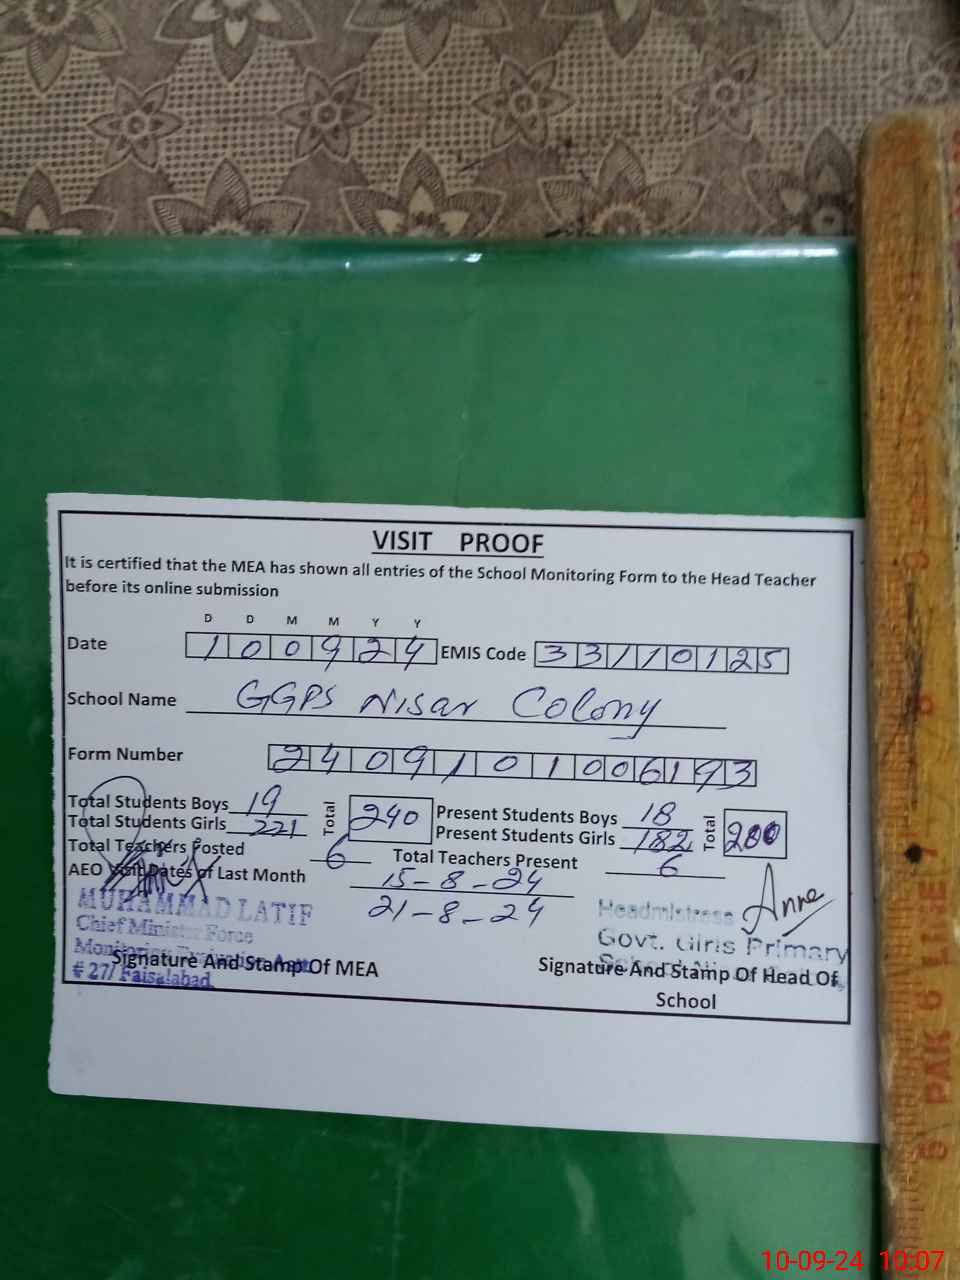 VISIT PROOF
It is certified that the MEA has shown all entries of the School Monitoring Form to the Head Teacher
before its online submission
D D M M Y Y
Date 1 0 0 9 2 4 EMIS Code 3 3 1 1 0 1 2 5
School Name GGPS Nisar Colony
Form Number 2 4 0 9 1 0 1 0 0 6 1 9 3
Total Students Boys 19 Total 240 Present Students Boys 18 Total 200
Total Students Girls 221 Present Students Girls 182
Total Teachers Posted 6 Total Teachers Present 6
AEO Visit Dates of Last Month 15-8-24
21-8-24
MUHAMMAD LATIF
Chief Minister Force
Monitoring
# 27/ Faisalabad
Signature And Stamp Of MEA
Anne
Headmistress
Govt. Girls Primary
School
Signature And Stamp Of Head Of
School
PAK 6 LINE
10-09-24 10:07